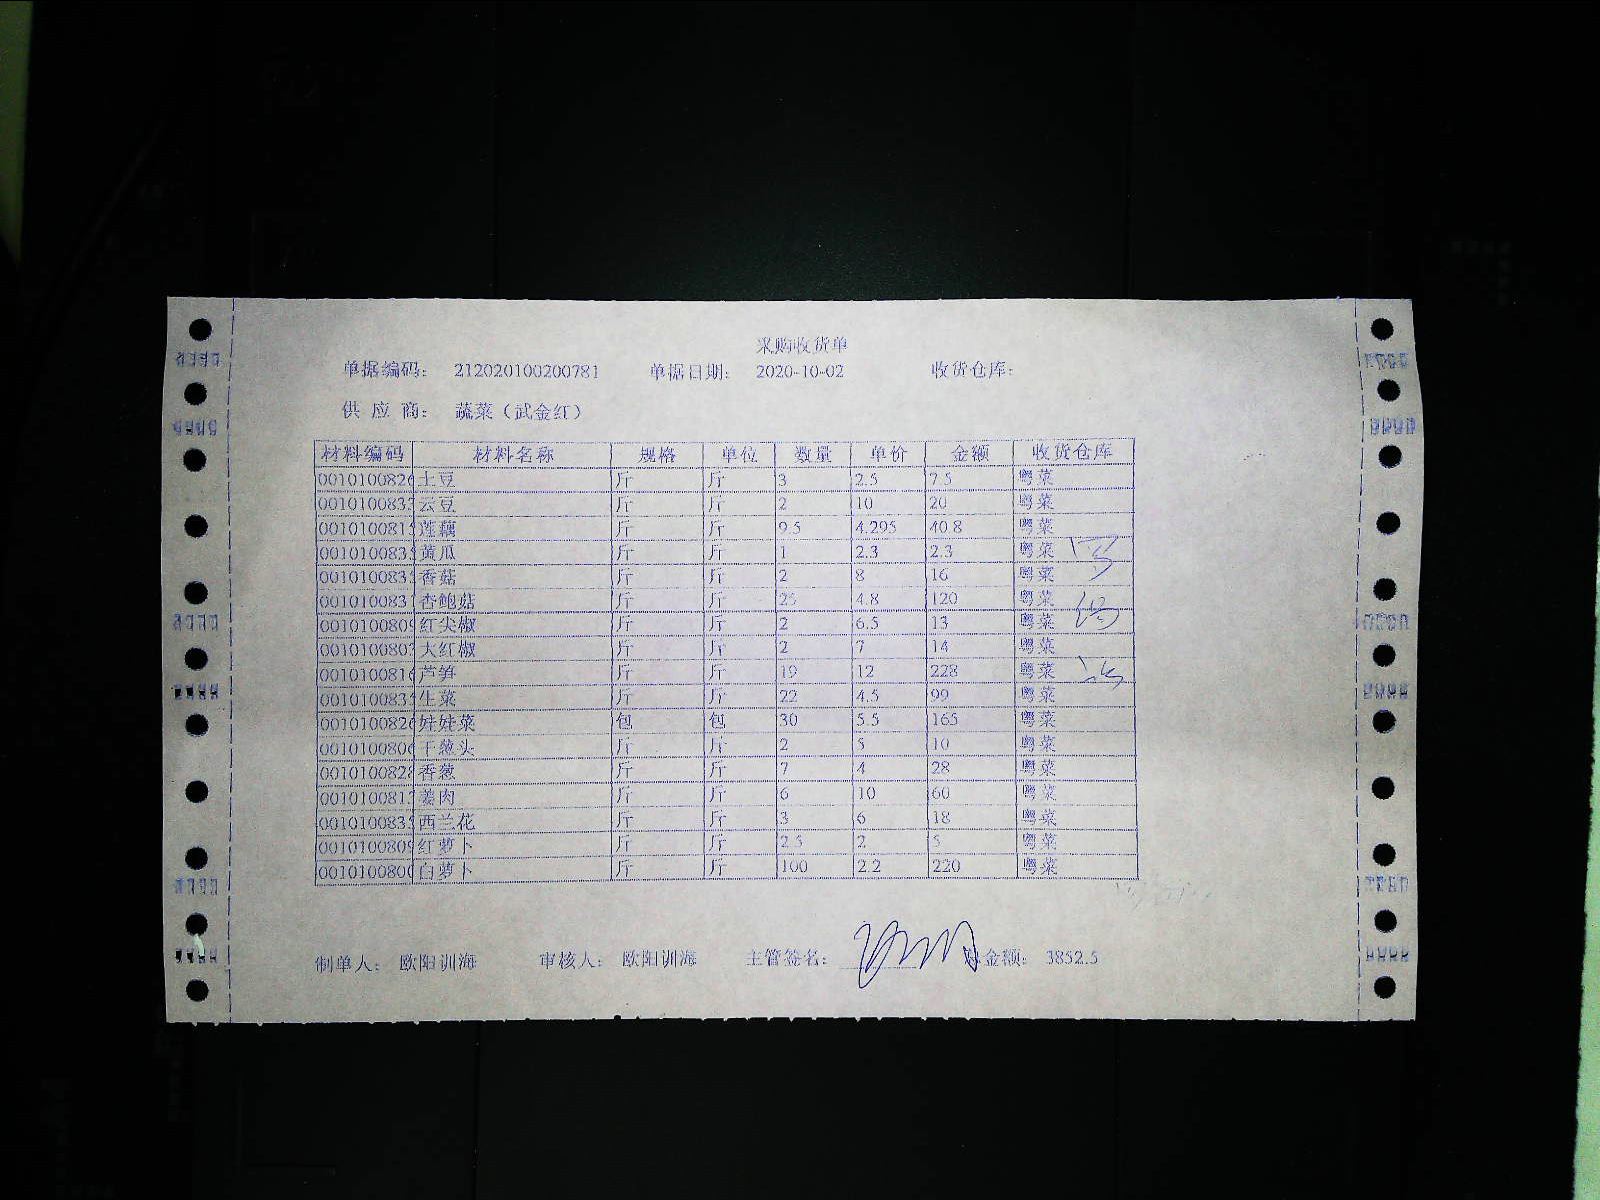 采购收货单
单据编码： 212020100200781 单据日期： 2020-10-02 收货仓库：
供 应 商： 蔬菜（武金红）
材料编码 材料名称 规格 单位 数量 单价 金额 收货仓库
0010100826 土豆 斤 斤 3 2.5 7.5 粤菜
001010083 云豆 斤 斤 2 10 20 粤菜
001010081 莲藕 斤 斤 9.5 4.295 40.8 粤菜
001010083 黄瓜 斤 斤 1 2.3 2.3 粤菜
001010083 香菇 斤 斤 2 8 16 粤菜
001010083 杏鲍菇 斤 斤 25 4.8 120 粤菜
001010080 红尖椒 斤 斤 2 6.5 13 粤菜
001010080 大红椒 斤 斤 2 7 14 粤菜
001010081 芦笋 斤 斤 19 12 228 粤菜
001010083 生菜 斤 斤 22 4.5 99 粤菜
001010082 娃娃菜 包 包 30 5.5 165 粤菜
001010080 干葱头 斤 斤 2 5 10 粤菜
001010082 香葱 斤 斤 7 4 28 粤菜
001010081 姜肉 斤 斤 6 10 60 粤菜
001010083 西兰花 斤 斤 3 6 18 粤菜
001010080 红萝卜 斤 斤 2.5 2 5 粤菜
001010080 白萝卜 斤 斤 100 2.2 220 粤菜
制单人： 欧阳训海 审核人： 欧阳训海 主管签名： 金额： 3852.5